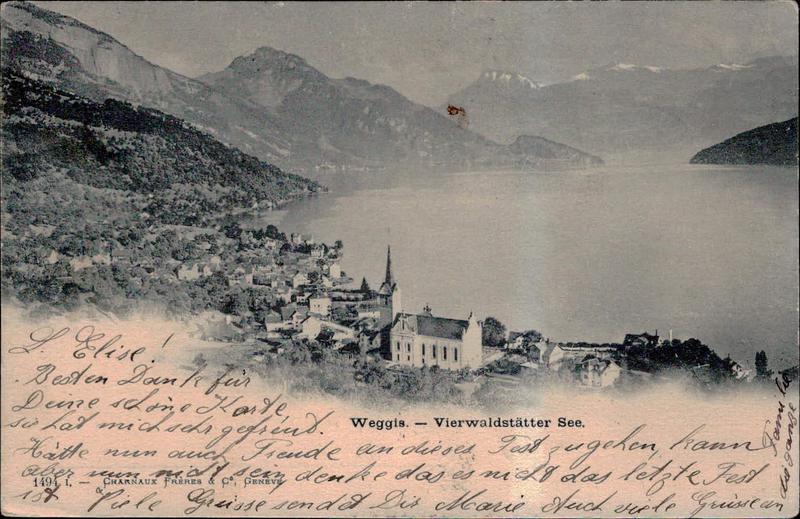 L. Elise!
Besten Dank für
Deine schöne Karte
sie hat mich sehr gefreut.
Weggis. — Vierwaldstätter See.
Hätte nun auch Freude an dieses Fest zugehen, kann
aber nun nicht sein denke das es nicht das letzte Fest
1494 I. — CHARNAUX FRÈRES & Cº, GENÈVE
ist Viele Grüsse sendet Dir Marie Auch viele Grüsse an
die ganze
Familie